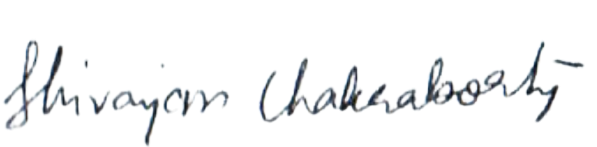 Shivayan Chakraborty